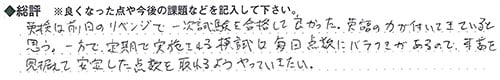 ◆総評　※良くなった点や今後の課題などを記入して下さい。
英検は前回のリベンジで一次試験を合格して良かった。英語の力が付いてきていると
思う。一方で、定期で実施される模試は毎回点数にバラつきがあるので、本番を
見据えて安定した点数を取れるようやっていきたい。